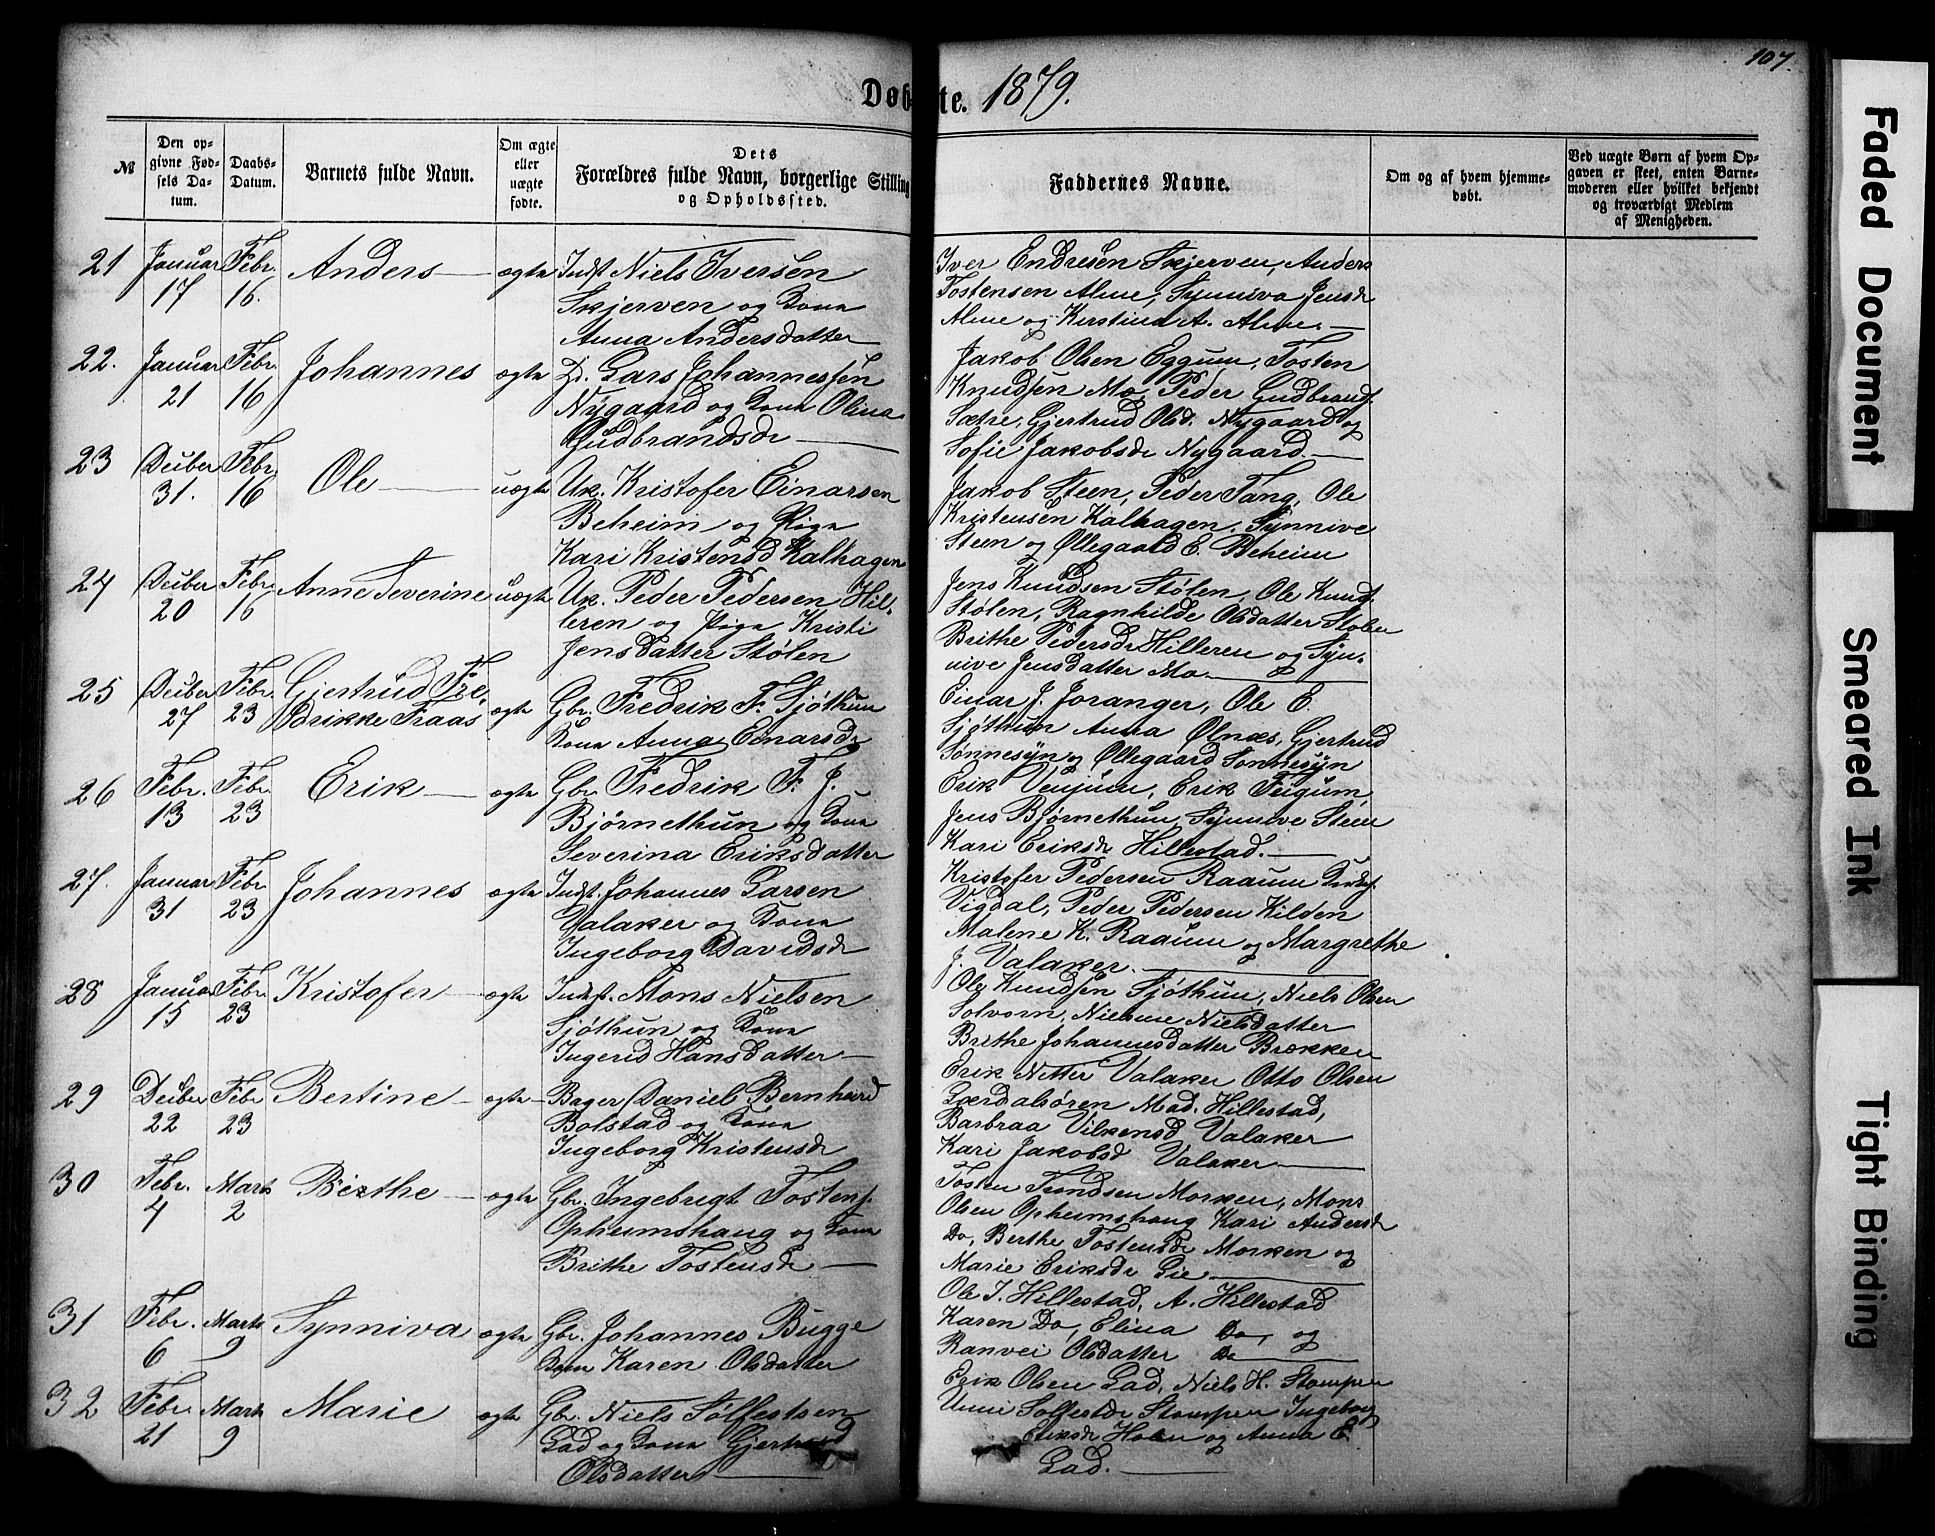 107.
Døbte. 1879.
№
Den op-
givne Fød-
sels Da-
tum.
Daabs-
Datum.
Barnets fulde Navn.
Om ægte
eller
uægte
fødte.
Dets
Forældres fulde Navn, borgerlige Stilling
og Opholdssted.
Faddernes Navne.
Om og af hvem hjemme-
døbt.
Ved uægte Børn af hvem Op-
gaven er skeet, enten Barne-
moderen eller hvilket bekjendt
og troværdigt Medlem
af Menigheden.
21 Januar 17 Febr. 16. Anders ægte Indst Niels Iversen
Skjerven og Kona
Anna Andersdatter
Iver Endresen Skjerven, Anders
Tostensen Alme, Synniva Jensdr
Alme og Kirstina A. Alme.
22. Januar 21 Febr. 16 Johannes ægte D. Lars Johannessen
Nygaard og Kona Olina
Gudbrandsdr
Jakob Olsen Eggum, Tosten
Knudsen Mo, Peder Gudbrands.
Sætre, Gjertrud Olsd. Nygaard og
Sofie Jakobsdr Nygaard.
23 Decber 31. Febr 16 Ole uægte Uk. Kristofer Einarsen
Beheim og Pige
Kari Kristensd Kalhagen
Jakob Steen, Peder Tang, Ole
Kristensen Kalhagen, Synnive
Steen og Øllegaard E. Beheim
24 Decber 20 Febr 16 Anne Severine uægte Uk. Peder Pedersen Hil-
leren og Pige Kristi
Jensdatter Stølen
Jens Knudsen Stølen, Ole Knud.
Stølen, Ragnhilde Olsdatter Stølen
Brithe Pedersdr Hilleren og Syn-
nive Jensdatter Mo
25 Decber 27 Febr 23 Gjertrud Fre-
drikke Fraas ægte Gbr. Fredrik F. Sjøthun
Kona Anna Einarsdr
Einar J. Joranger, Ole E.
Sjøthun Anna Ølnæs, Gjertrud
Sønnesyn og Øllegaard Sønnesyn
26 Febr. 13 Febr 23 Erik ægte Gbr Fredrik F. J.
Bjørnethun og Kona
Severina Eriksdatter
Erik Venjum, Erik Feigum,
Jens Bjørnethun, Synnive Steen
Kari Eriksdr Hillestad.
27. Januar 31 Febr 23 Johannes ægte Indst. Johannes Larsen
Valaker og Kona
Ingeborg Davidsdr
Kristofer Pedersen Raaum
Vigdal, Peder Pedersen Kilden
Malene K. Raaum og Margrethe
J. Valaker.
28 Januar 15 Febr 23 Kristofer ægte Indst. Mons Nielsen
Sjøthun og Kona
Ingerid Hansdatter
Ole Knudsen Sjøthun, Niels Olsen
Solvorn, Nielsdatter
Brithe Johannesdatter Brækken
29 Decber 22 Febr 23 Bertine ægte Bager Daniel Bernhard
Bolstad og Kona
Ingeborg Kristensdr
Erik Nitter Valaker Otto Olsen
Lærdalsøren Mad. Hillestad,
Barbraa Vilkensd Valaker
Kari Jakobsd Valaker
30 Febr. 4 Marts 2 Berthe ægte Gbr. Ingebrigt Tostens.
Opheimshaug og Kona
Brithe Tostensdr
Tosten Morken, Mons
Olsen Opheimshaug Kari Andersdr
Do, Berthe Tostensdr Morken og
Marie Eriksdr Lie
31 Febr. 6 Marts 9 Synniva ægte Gbr. Johannes Bugge
Kona Karen Olsdatter
Ole J. Hillestad, A. Hillestad
Karen Do, Elina Do, og
Ranvei Olsdatter Do
32 Febr 21 Marts 9 Marie ægte Gbr. Niels Solfestsen
Lad og Kona Gjertrud
Olsdatter
Erik Olsen Lad, Niels H. Stompen
Unni Solfestdr Stompen Ingeborg
Eriksdr Holen og Anna E.
Lad.
Faded Document
Smeared Ink
Tight Binding